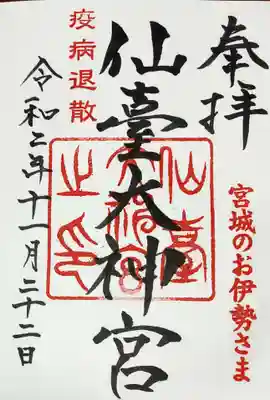 奉拝
宮城のお伊勢さま
仙臺大神宮
疫病退散
令和二年十一月二十二日